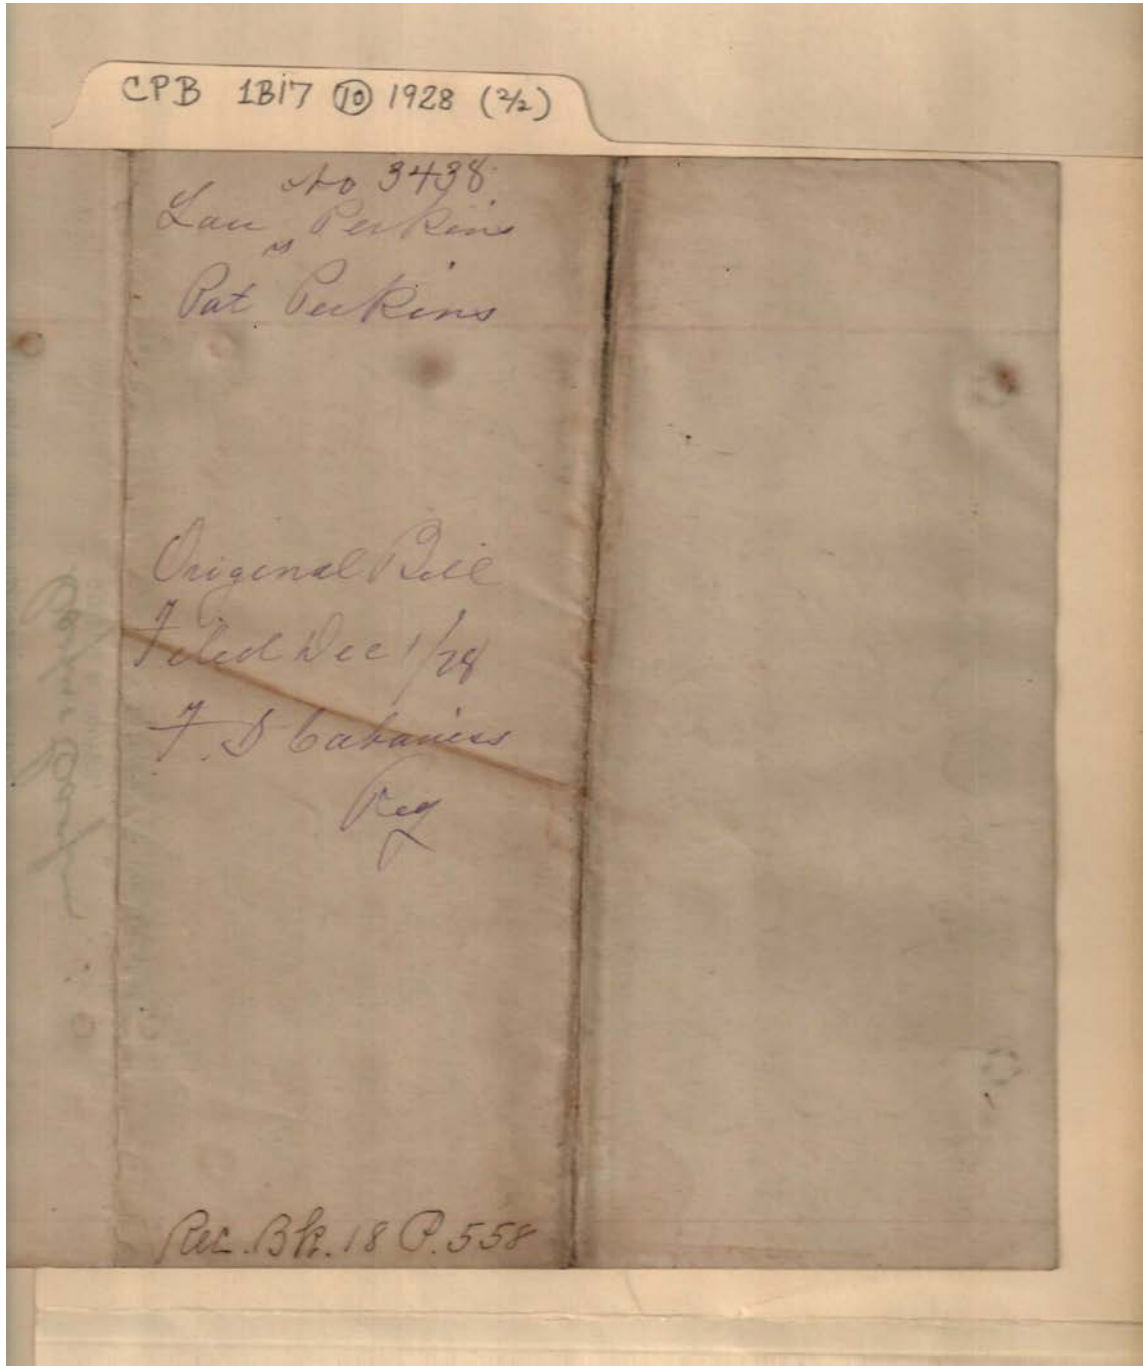 CPB 1B17 ⑩ 1928 (2/2)
No 3438
Lau Perkins
vs
Pat Perkins
Original Bill
Filed Dec 1/28
F. D Cabaniss
Reg
Rec. Bk. 18 P. 558